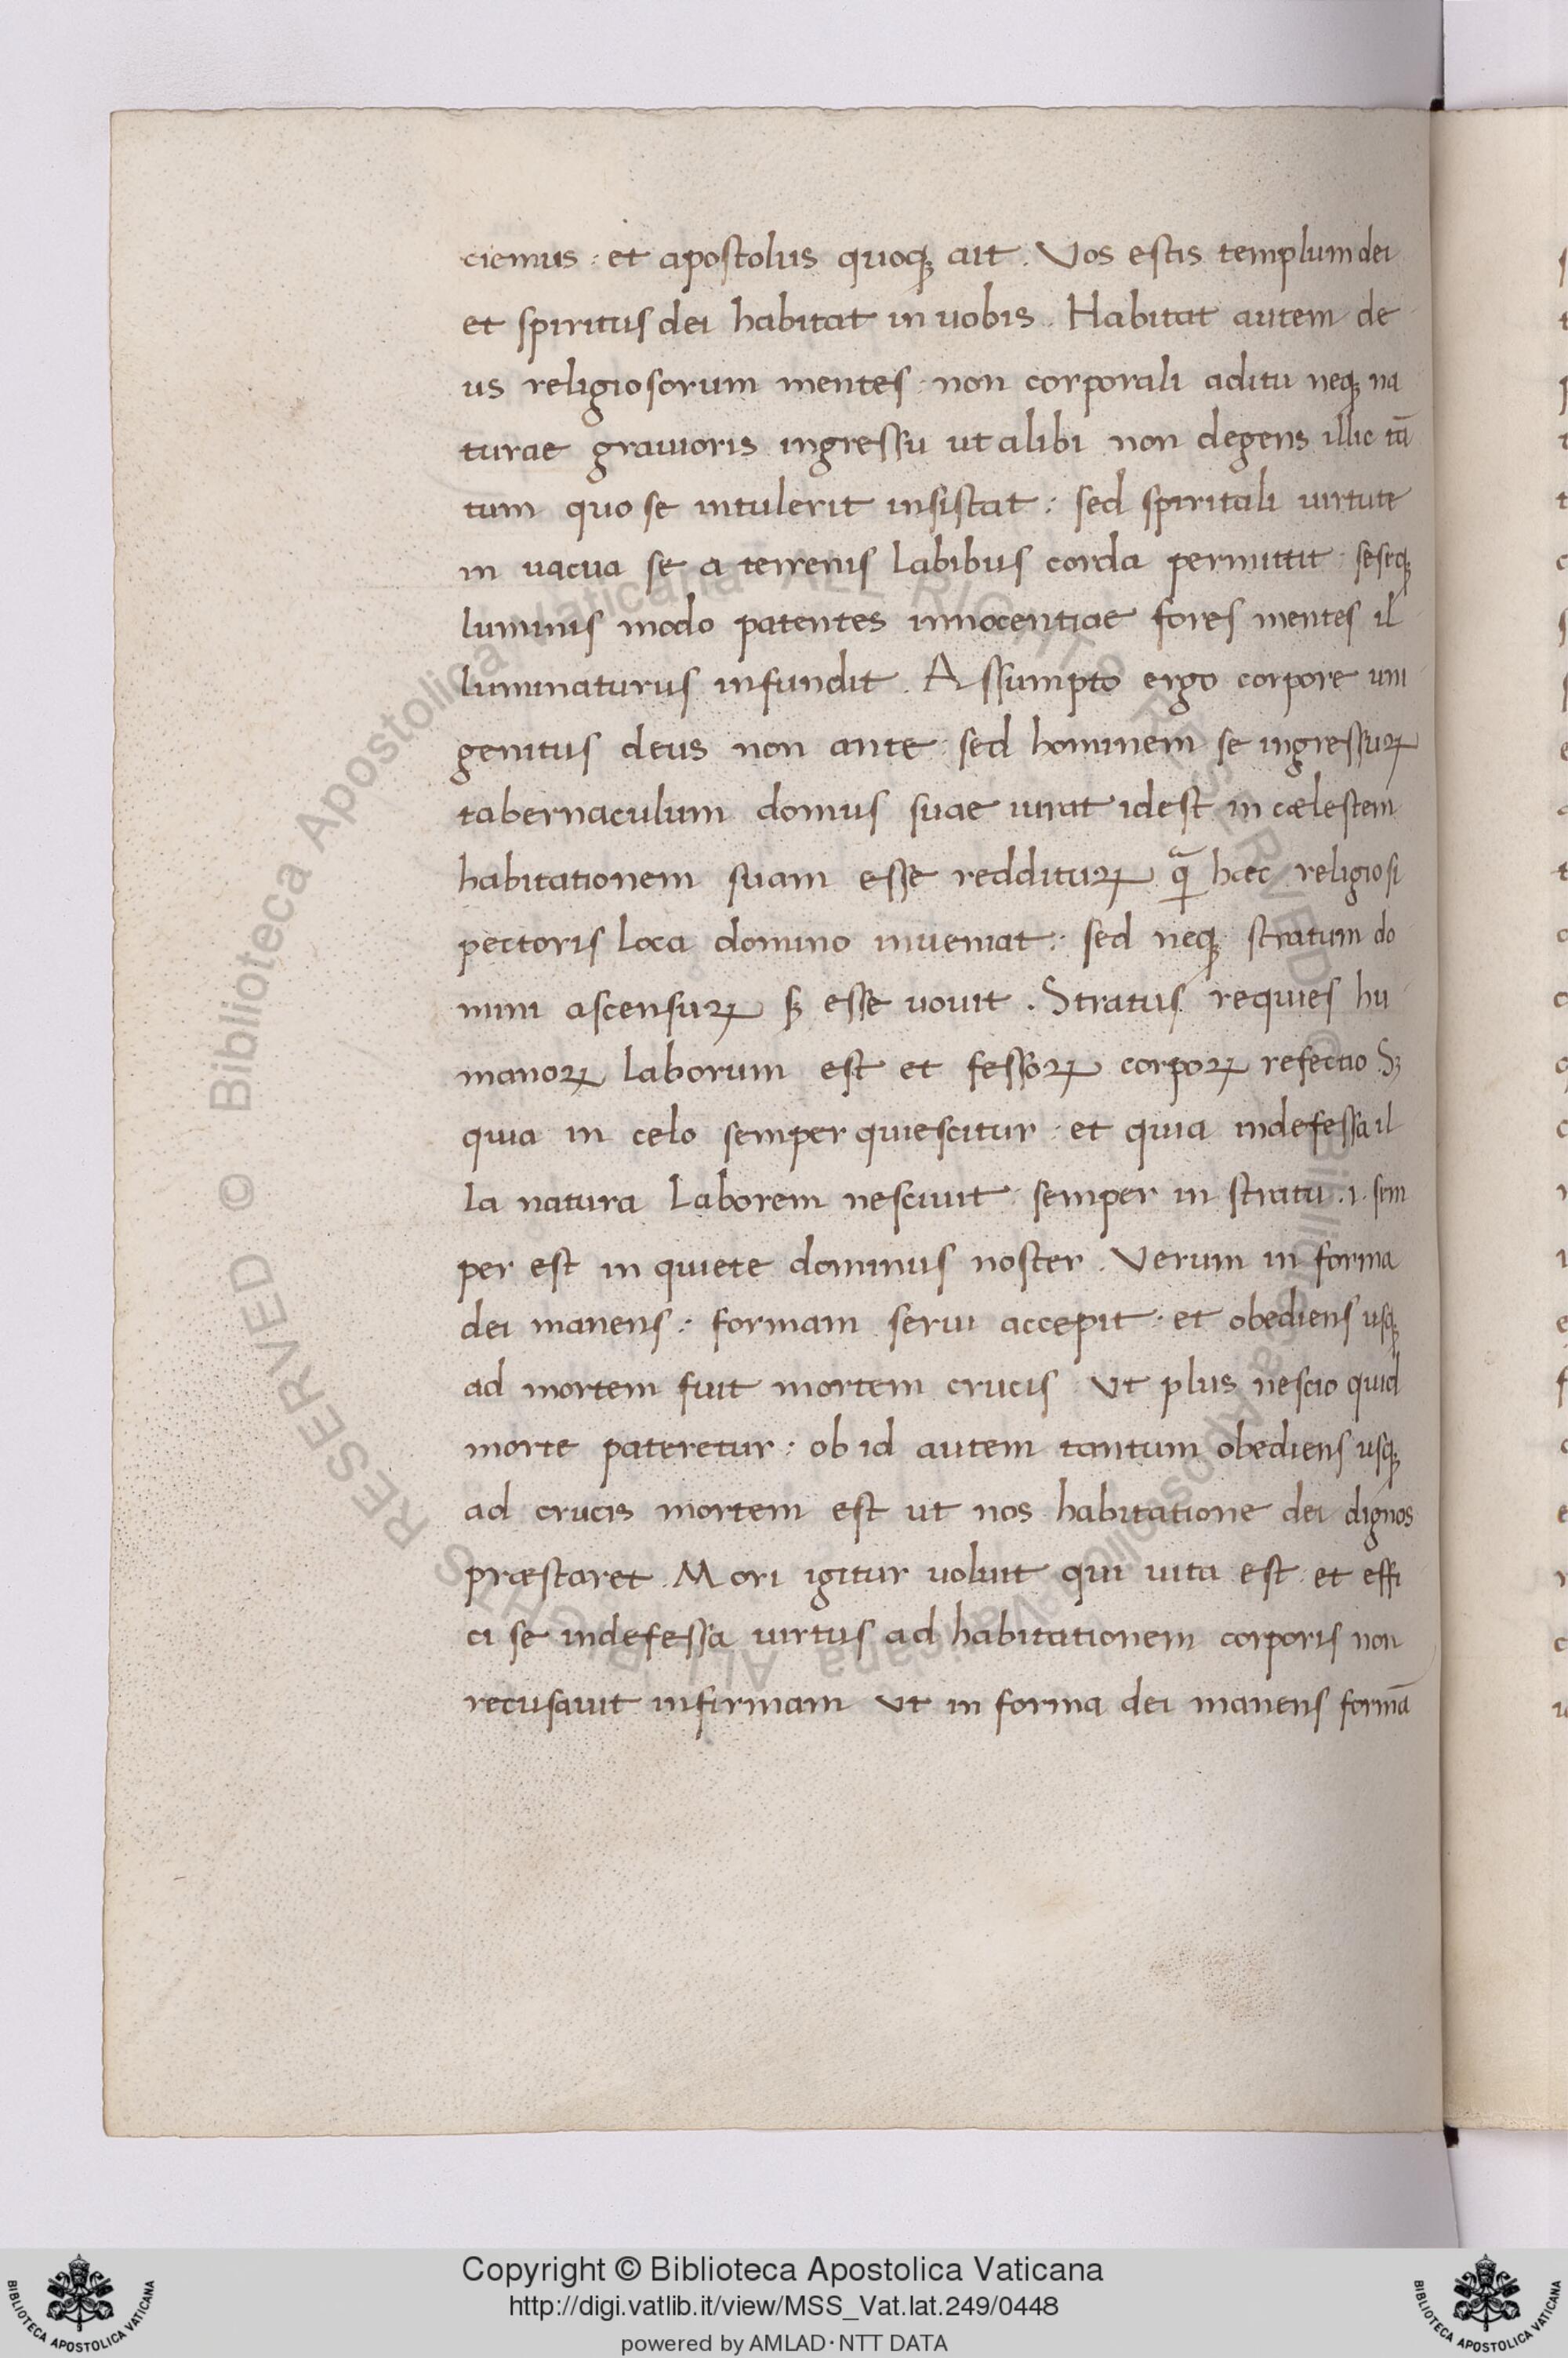 ciemus : et apostolus quoqꝫ ait . Vos estis templum dei
et spiritus dei habitat in uobis . Habitat autem de
us religiosorum mentes · non corporali aditu neqꝫ na
turae grauioris ingressu ut alibi non degens illic tā
tum quo se intulerit insistat : sed spiritali uirtute
in uacua se a terrenis labibus corda permittit · seseqꝫ
luminis modo patentes innocentiae fores mentes il
luminaturus infundit . Assumpto ergo corpore uni
genitus deus non ante · sed hominem se ingressuꝝ
tabernaculum domus suae iurat idest in cælestem
habitationem suam esse reddituꝝ hæc religiosi
pectoris loca domino inueniat : sed neqꝫ stratum do
mini ascensuꝝ esse uouit . Stratus requies hu
manoꝝ laborum est et fessoꝝ corpoꝝ refectio Sꝫ
quia in celo semper quiescitur : et quia indefessa il
la natura laborem nesciuit · semper in stratu .i. sem
per est in quiete dominus noster . Verum in forma
dei manens : formam serui accepit · et obediens usqꝫ
ad mortem fuit mortem crucis Vt plus nescio quid
morte pateretur : ob id autem tantum obediens usqꝫ
ad crucis mortem est ut nos habitatione dei dignos
præstaret . Mori igitur uoluit qui uita est · et effi
ci se indefessa uirtus ad habitationem corporis non
recusauit infirmam Vt in forma dei manens formā
Copyright © Biblioteca Apostolica Vaticana
http://digi.vatlib.it/view/MSS_Vat.lat.249/0448
powered by AMLAD·NTT DATA
BIBLIOTECA APOSTOLICA VATICANA
BIBLIOTECA APOSTOLICA VATICANA